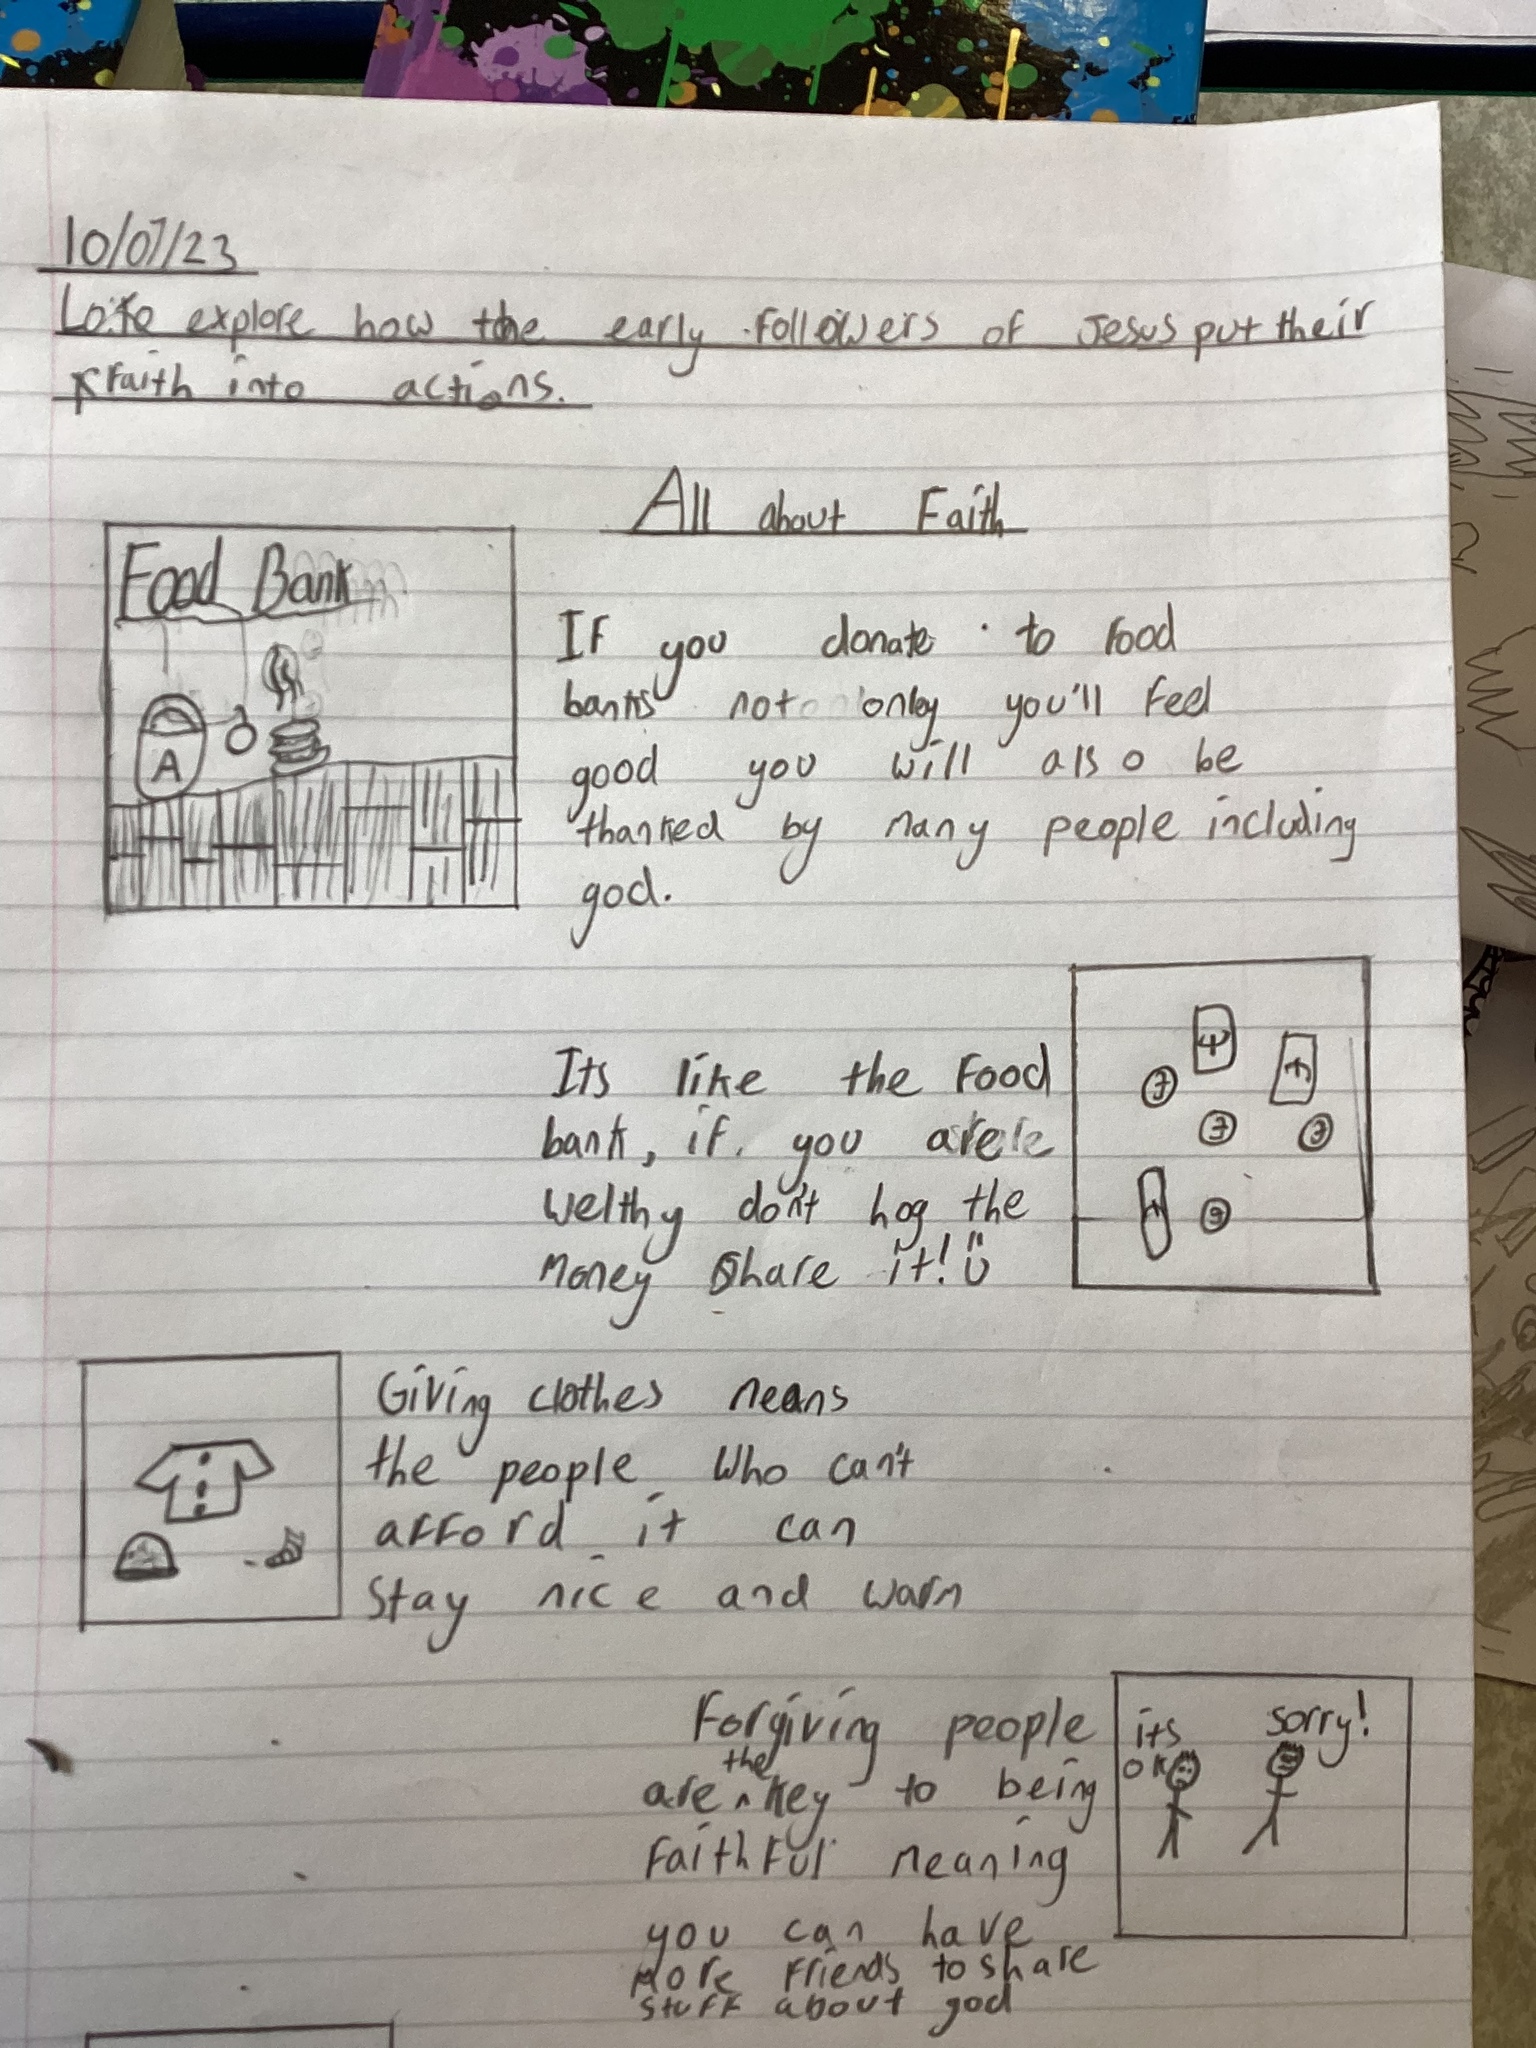 10/07/23
Lo:To explore how the early followers of Jesus put their
faith into actions.
All about Faith
Food Bank
A
If you donate to food
banks not only you'll feel
good you will also be
thanked by many people including
god.
Its like the food
bank, if you are
welthy don't hog the
money share it!
Giving clothes means
the people who can't
afford it can
stay nice and warm
Forgiving people
are the key to being
faithful meaning
you can have
more friends to share
stuff about god
its
ok
sorry!